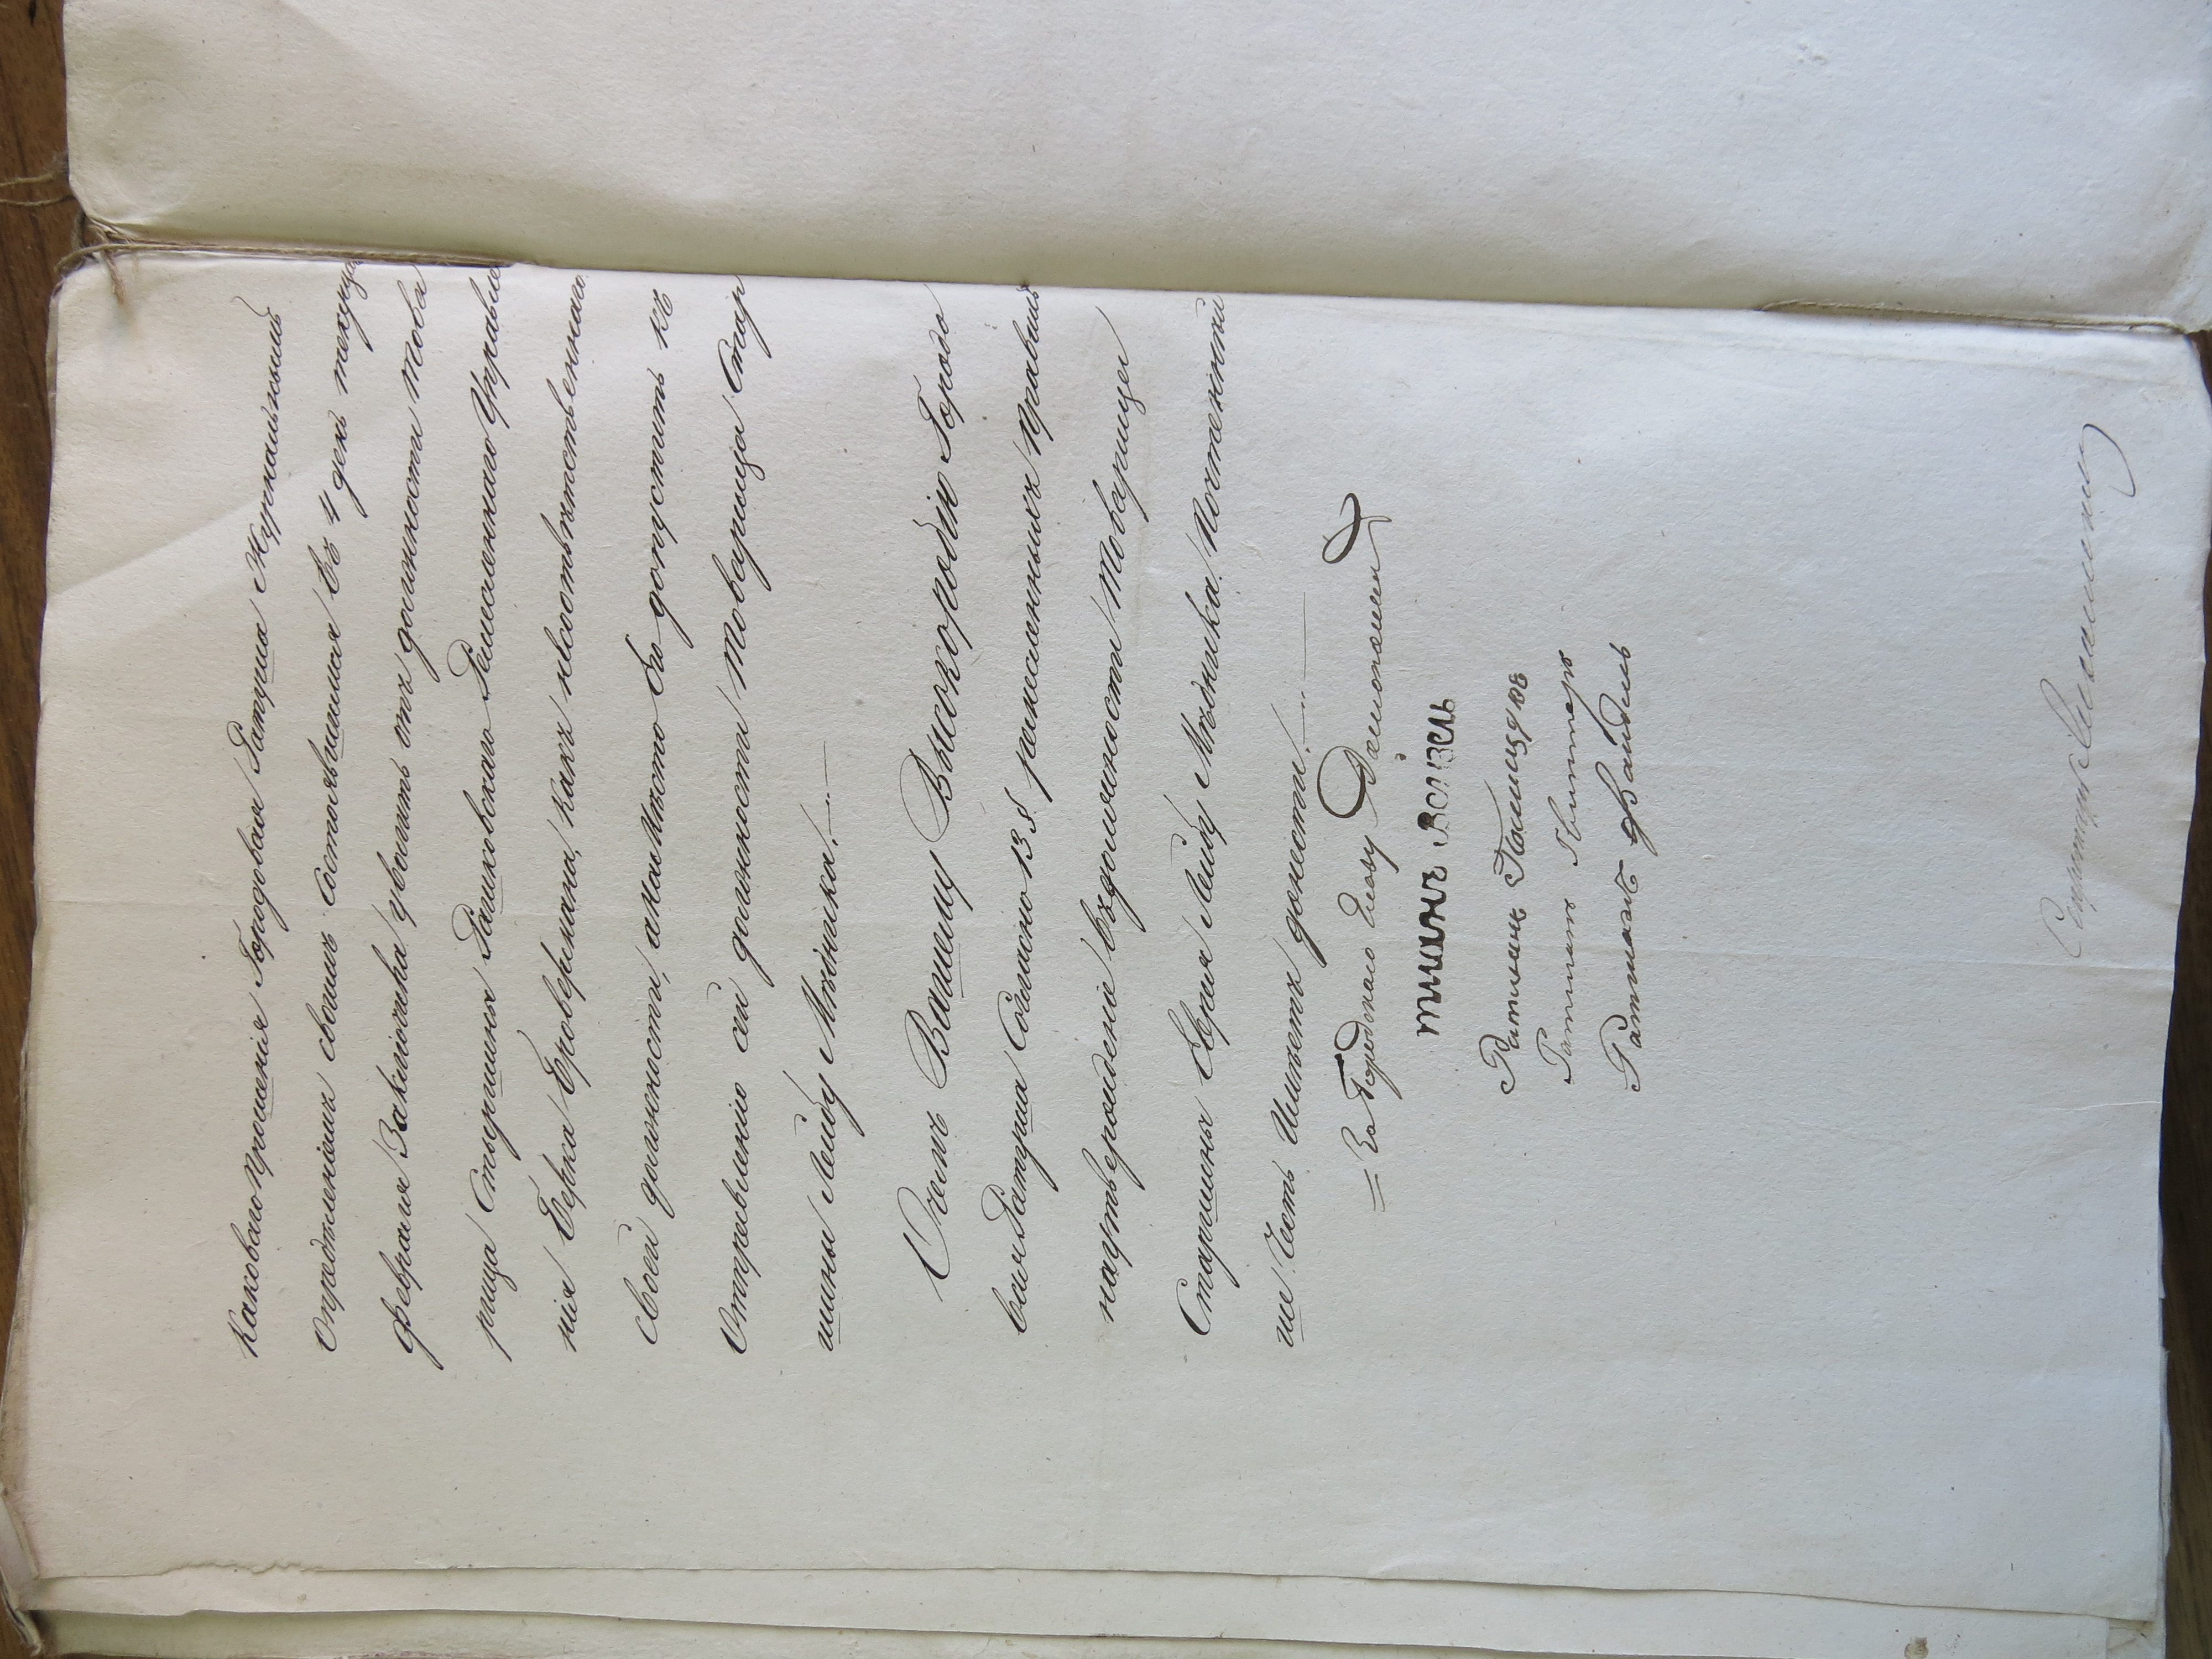 Каковаго Прошенія Городовая Ратуша Журнальнымъ
Опредѣленіемъ своимъ Состоявшимся въ 4 день текуща
Февраля Заключила уволить отъ должности Това
рища Старшины Рашковскаго Ремесленнаго Управле
нія Берка Бровермана, какъ несоотвѣтственнаго
своей должности, а на мѣсто его допустить къ
Отправленію сей должности Товарища Стар
шины Лейбу Мѣдника.
О чемъ Вашему Высокородію Городо
вая Ратуша Согласно 138 ремесленныхъ правилъ
на утвержденіе въ должности Товарища
Старшины Еврея Лейбу Мѣдника, Почтеннѣй
ше Честь Имѣетъ донести.
За Городскаго Главу
Ратманъ
Ратманъ
Ратманъ